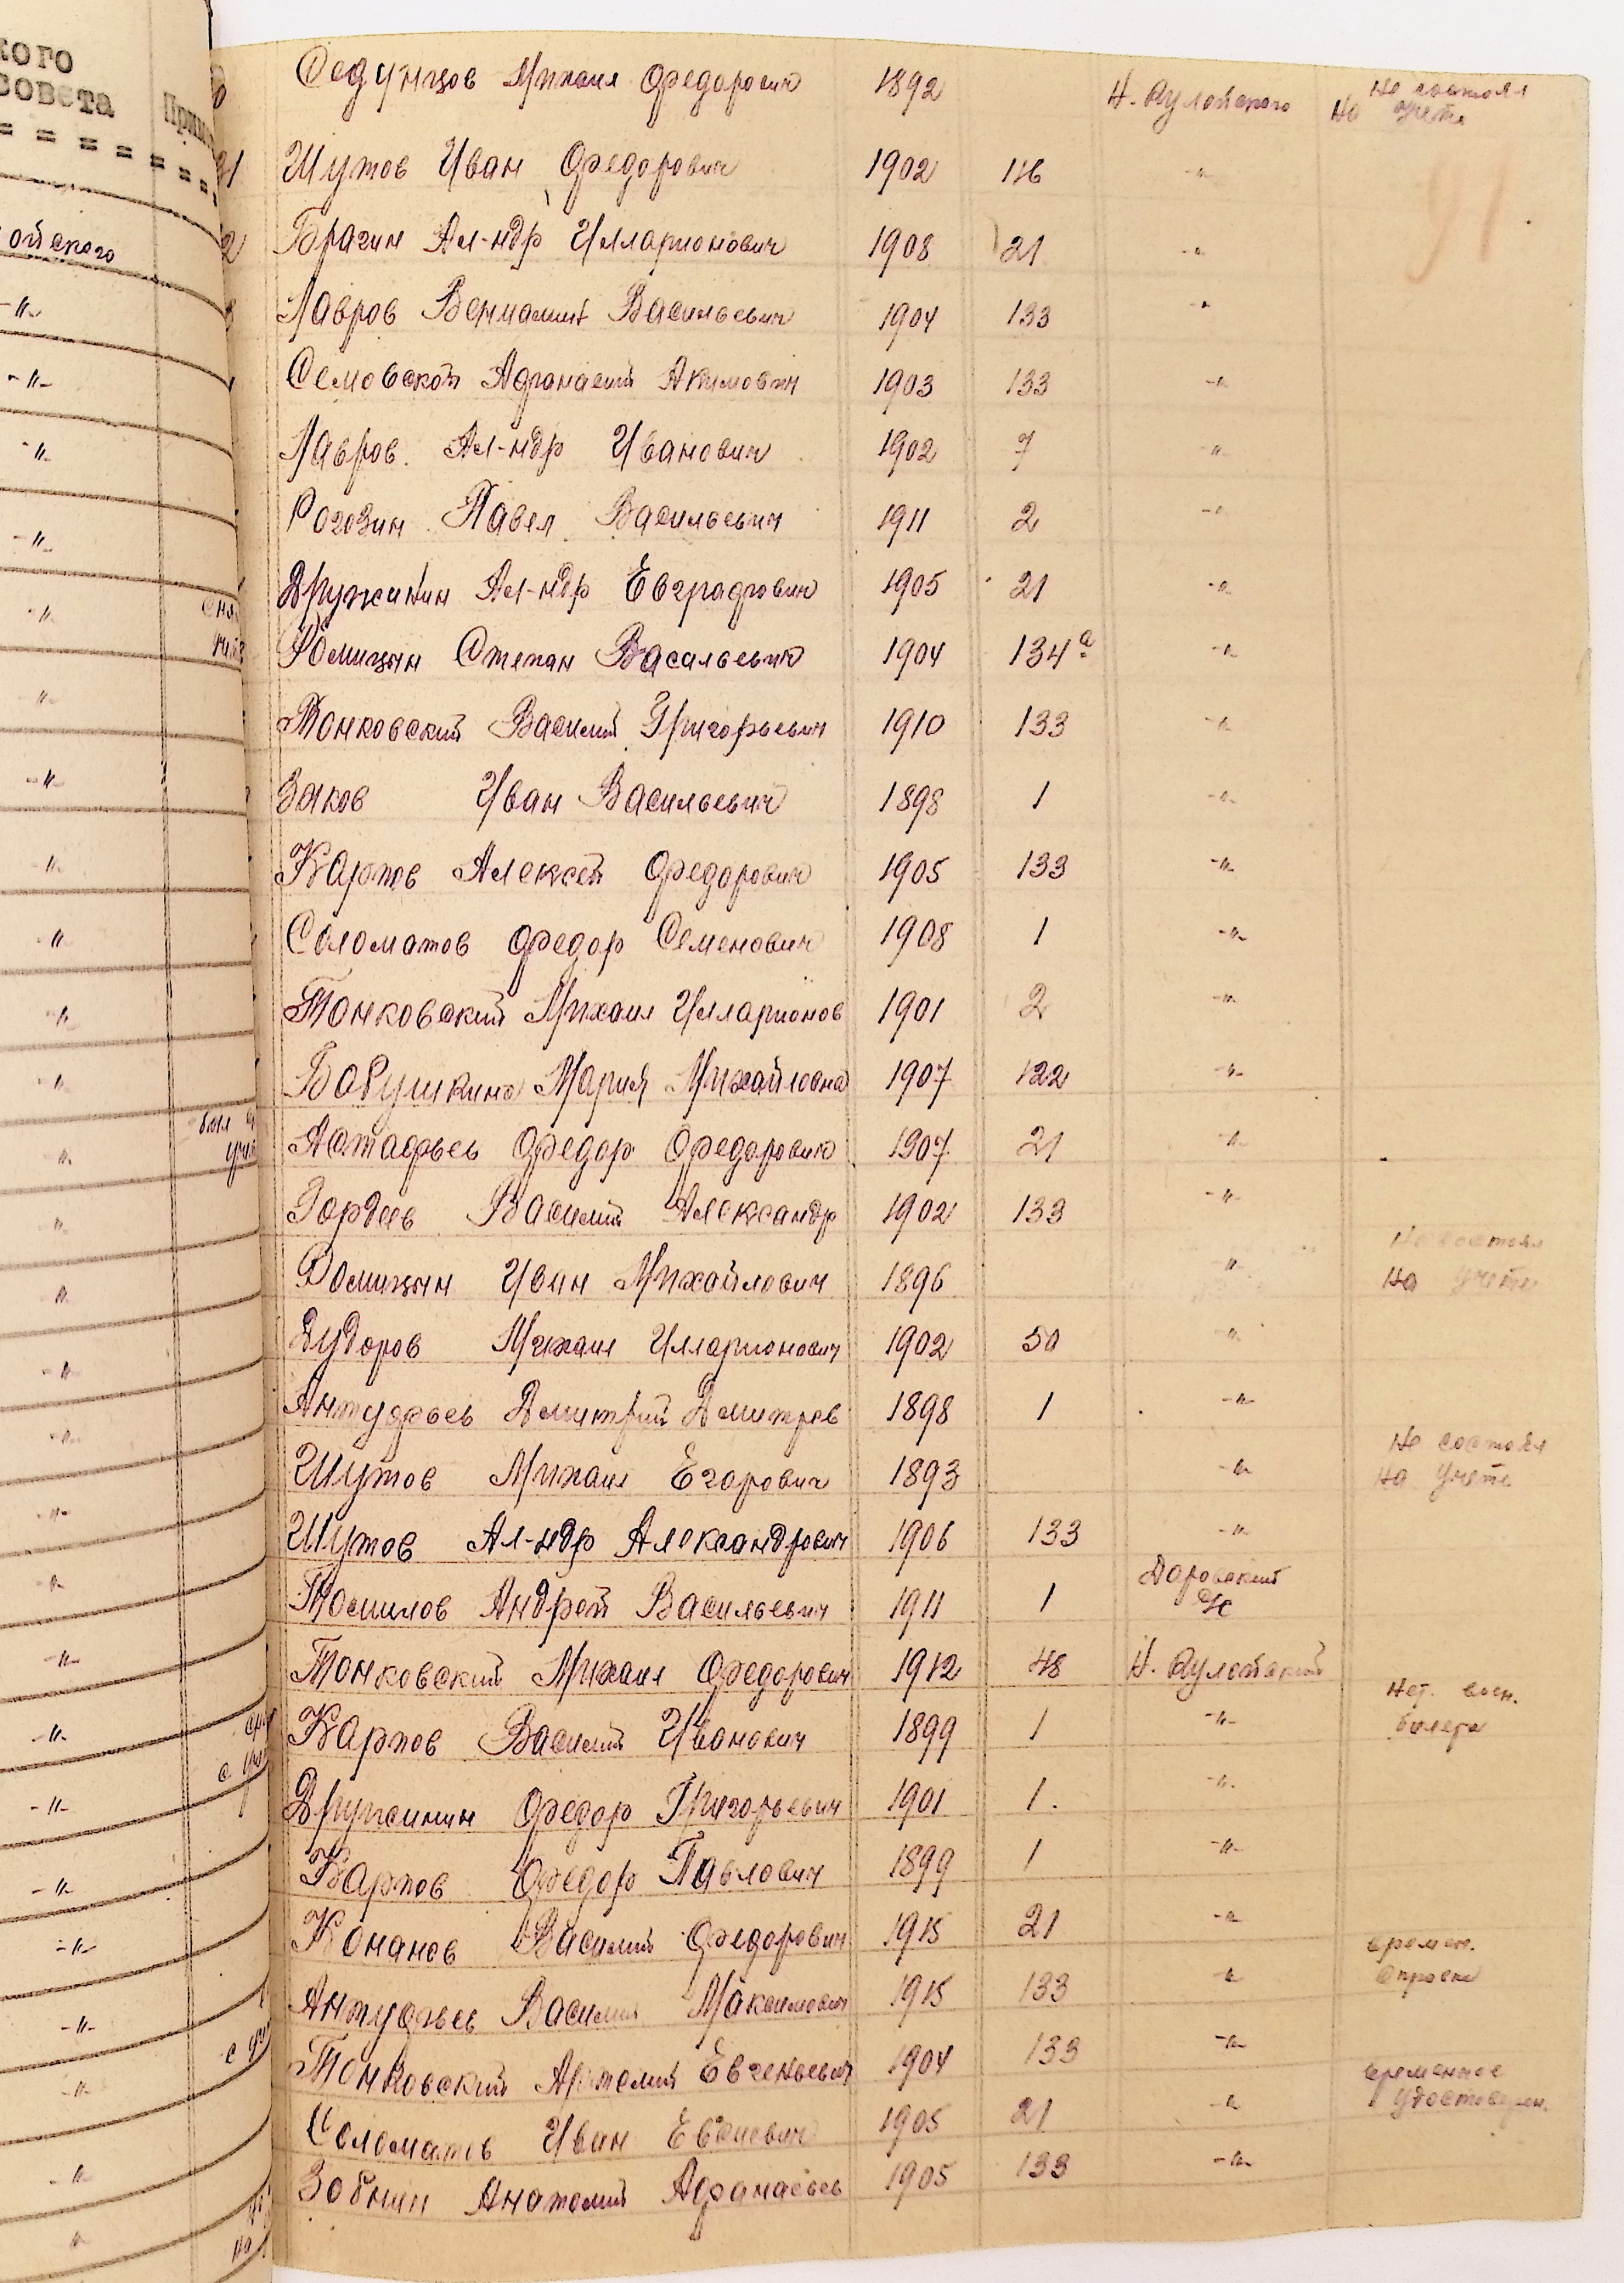 кого
совета
= = = = = = =
ойского
Седунцов Михаил Федорович 1892 Н. Пулойского Не состоял
На учете
Шутов Иван Федорович 1902 116 -"-
Брагин Ал-ндр Илларионович 1908 21 -"-
Лавров Вениамин Васильевич 1904 133 -"-
Семовской Афанасий Акимович 1903 133 -"-
Лавров Ал-ндр Иванович 1902 7 -"-
Рогозин Павел Васильевич 1911 2 -"-
Дружинин Ал-ндр Евграфович 1905 21 -"-
Фомицын Степан Васильевич 1904 134а -"-
Тонковский Василий Григорьевич 1910 133 -"-
Зыков Иван Васильевич 1898 1 -"-
Карпов Алексей Федорович 1905 133 -"-
Соломатов Федор Семенович 1908 1 -"-
Тонковский Михаил Илларионов 1901 2 -"-
Бабушкина Мария Михайловна 1907 122 -"-
Астафьев Федор Федорович 1907 21 -"-
Гордеев Василий Александр 1902 133 -"-
Фомицын Иван Михайлович 1896 -"- Не состоял
На учете
Дудоров Михаил Илларионович 1902 50 -"-
Антуфьев Дмитрий Дмитрев 1898 1 -"-
Шутов Михаил Егорович 1893 -"- Не состоял
на учете
Шутов Ал-ндр Александрович 1906 133 -"-
Томилов Андрей Васильевич 1911 1 Даровский
Тонковский Михаил Федорович 1912 48 Н. Пулойский
Карпов Василий Иванович 1899 1 -"- Нет. воен.
билета
Дружинин Федор Григорьевич 1901 1. -"-
Карпов Федор Павлович 1899 1 -"-
Конанов Василий Федорович 1915 21 -"-
Антуфьев Василий Максимович 1915 133 -"- времен.
справка
Тонковский Артемий Евгеньевич 1904 133 -"-
Соломатов Иван Евсиевич 1905 21 -"- временное
удостоверен.
Зобнин Анатолий Афанасьев 1905 133 -"-